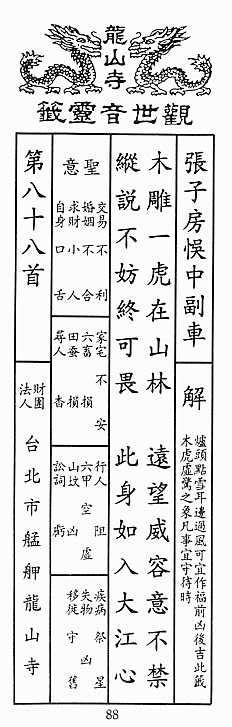 龍山寺
觀世音靈籤
張子房悞中副車
解
爐頭點雪耳邊過風可宜作福前凶後吉此籤
木虎虛驚之象凡事宜守待時
木雕一虎在山林 遠望威容意不禁
縱說不妨終可畏 此身如入大江心
聖意
交易不利
婚姻不合
求財小人
自身口舌
家宅不安
六畜損
田蚕損
尋人香
行人阻
六甲空虛
山坟凶
訟詞虧
疾病祭星
失物凶
移徙守舊
第八十八首
財團法人
台北市艋舺龍山寺
88